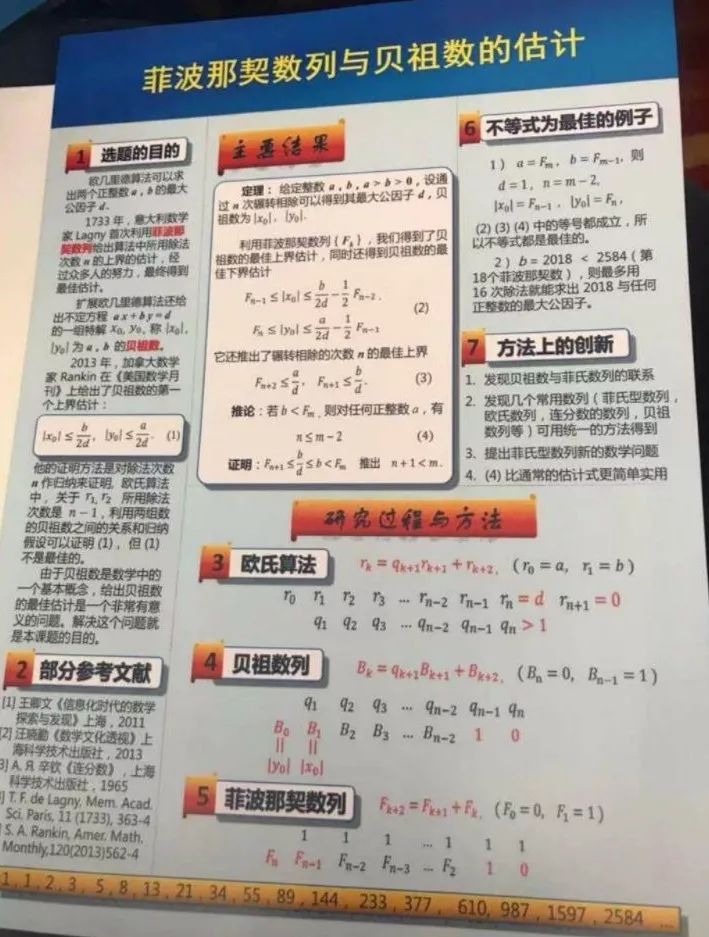 菲波那契数列与贝祖数的估计
1 选题的目的
欧几里德算法可以求
出两个正整数 a , b 的最大
公因子 d.
1733 年,意大利数学
家 Lagny 首次利用菲波那
契数列给出算法中所用除法
次数 n 的上界的估计,经
过众多人的努力,最终得到
最佳估计。
扩展欧几里德算法还给
出不定方程 ax + by = d
的一组特解 x₀, y₀, 称 |x₀|,
|y₀| 为 a , b 的贝祖数。
2013 年,加拿大数学
家 Rankin 在《美国数学月
刊》上给出了贝祖数的第一
个上界估计:
|x₀| ≤ b/2d, |y₀| ≤ a/2d. (1)
他的证明方法是对除法次数
n 作归纳来证明, 欧氏算法
中,关于 r₁, r₂ 所用除法
次数是 n − 1 , 利用两组数
的贝祖数之间的关系和归纳
假设可以证明 (1) , 但 (1)
不是最佳的。
由于贝祖数是数学中的
一个基本概念,给出贝祖数
的最佳估计是一个非常有意
义的问题。解决这个问题就
是本课题的目的。
2 部分参考文献
[1] 王卿文《信息化时代的数学
探索与发现》上海,2011
[2] 汪晓勤《数学文化透视》上
海科学技术出版社,2013
3] А. Я. 辛钦《连分数》,上海
科学技术出版社,1965
] T. F. de Lagny, Mem. Acad.
Sci. Paris, 11 (1733), 363-4
] S. A. Rankin, Amer. Math.
Monthly,120(2013)562-4
主要结果
定理:给定整数 a , b , a > b > 0 , 设通
过 n 次辗转相除可以得到其最大公因子 d , 贝
祖数为 |x₀| , |y₀| .
利用菲波那契数列 { Fₖ } , 我们得到了贝
祖数的最佳上界估计,同时还得到贝祖数的最
佳下界估计
Fₙ₋₁ ≤ |x₀| ≤ b/2d − 1/2 Fₙ₋₂ ,
(2)
Fₙ ≤ |y₀| ≤ a/2d − 1/2 Fₙ₋₁
它还推出了辗转相除的次数 n 的最佳上界
Fₙ₊₂ ≤ a/d , Fₙ₊₁ ≤ b/d . (3)
推论:若 b < Fₘ , 则对任何正整数 a , 有
n ≤ m − 2 (4)
证明:Fₙ₊₁ ≤ b/d ≤ b < Fₘ 推出 n + 1 < m .
6 不等式为最佳的例子
1 ) a = Fₘ , b = Fₘ₋₁, 则
d = 1 , n = m − 2,
|x₀| = Fₙ₋₁ , |y₀| = Fₙ ,
(2) (3) (4) 中的等号都成立,所
以不等式都是最佳的。
2 ) b = 2018 < 2584 ( 第
18个菲波那契数 ) , 则最多用
16 次除法就能求出 2018 与任何
正整数的最大公因子。
7 方法上的创新
1. 发现贝祖数与菲氏数列的联系
2. 发现几个常用数列 ( 菲氏型数列 ,
欧氏数列,连分数的数列,贝祖
数列等 ) 可用统一的方法得到
3. 提出菲氏型数列新的数学问题
4. (4) 比通常的估计式更简单实用
研究过程与方法
3 欧氏算法 rₖ = qₖ₊₁rₖ₊₁ + rₖ₊₂, ( r₀ = a, r₁ = b )
r₀ r₁ r₂ r₃ … rₙ₋₂ rₙ₋₁ rₙ = d rₙ₊₁ = 0
q₁ q₂ q₃ … qₙ₋₂ qₙ₋₁ qₙ > 1
4 贝祖数列 Bₖ = qₖ₊₁Bₖ₊₁ + Bₖ₊₂, ( Bₙ = 0, Bₙ₋₁ = 1 )
q₁ q₂ q₃ … qₙ₋₂ qₙ₋₁ qₙ
B₀ B₁ B₂ B₃ … Bₙ₋₂ 1 0
|| ||
|y₀| |x₀|
5 菲波那契数列 Fₖ₊₂ = Fₖ₊₁ + Fₖ, ( F₀ = 0, F₁ = 1 )
1 1 1 … 1 1 1
Fₙ Fₙ₋₁ Fₙ₋₂ Fₙ₋₃ … F₂ 1 0
1 , 1 , 2 , 3 , 5 , 8 , 13 , 21 , 34 , 55 , 89 , 144 , 233 , 377 , 610, 987 , 1597 , 2584 …